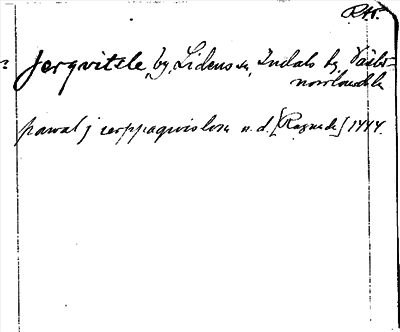 Jerqvitle, by, Lidens sn, Indals tg, Väster-
norrlands l
pawal j jerppaqwislom n. d. [Ragunda] 1444.